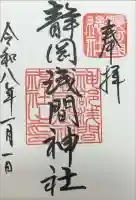 奉拝
静岡浅間神社
令和八年一月一日